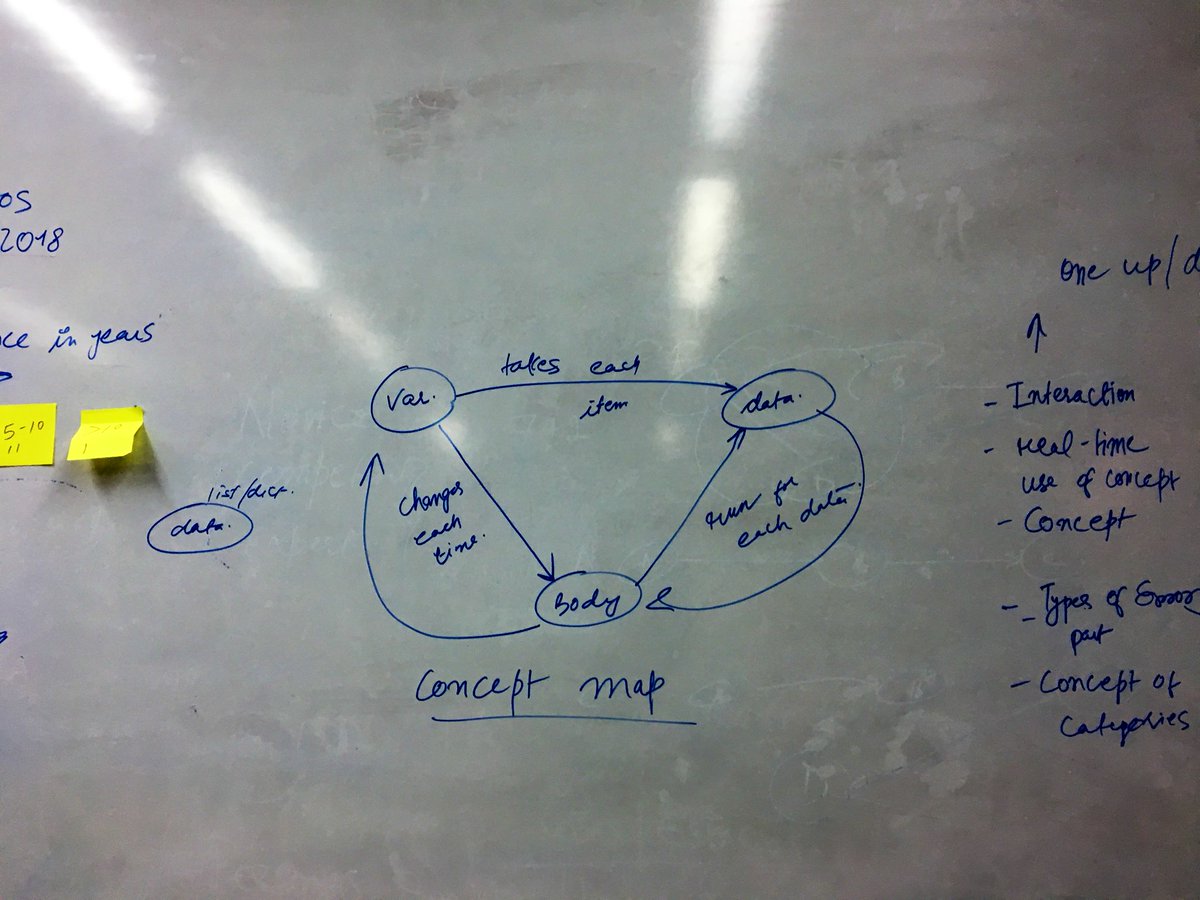 OS
2018
ce in years
5-10
11
1
list/dict.
data.
Var.
takes each
item
data.
changes
each
time.
run for
each data.
Body
Concept map
one up/d
- Interaction
- real-time
use of concept
- Concept
- Types of Error
part
- Concept of
Categories